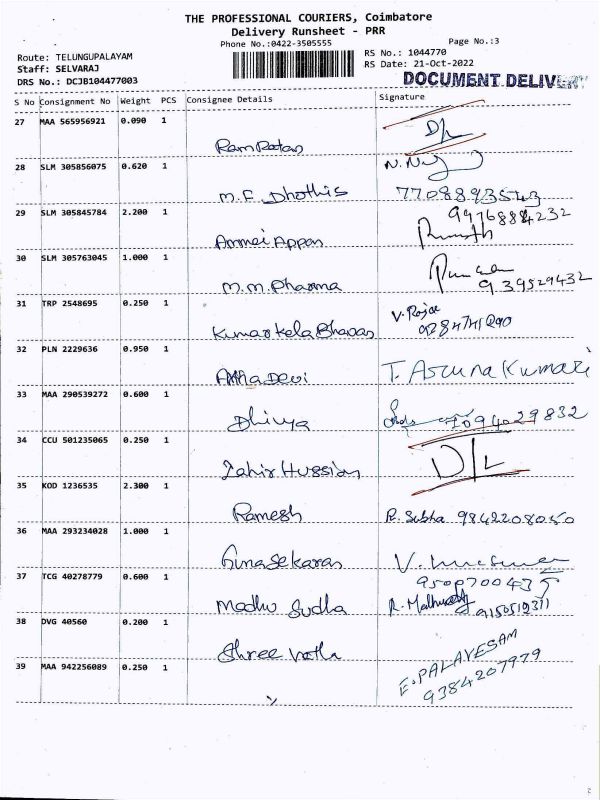 THE PROFESSIONAL COURIERS, Coimbatore
Delivery Runsheet - PRR
Phone No.:0422-3505555
Page No.:3
Route: TELUNGUPALAYAM
Staff: SELVARAJ
DRS No.: DCJB104477003
RS No.: 1044770
RS Date: 21-Oct-2022
DOCUMENT DELIVERY
S No Consignment No Weight PCS Consignee Details Signature
27 MAA 565956921 0.090 1
Ram Ratan D/L
28 SLM 305856075 0.620 1
M.F. Dhothis 7708893543
29 SLM 305845784 2.200 1 9976884232
Ammei Appan
30 SLM 305763045 1.000 1
M.M. Pharma 939529432
31 TRP 2548695 0.250 1 V. Roja
Kumar Kela Bhavan
32 PLN 2229636 0.950 1
Devi T. Aruna Kumari
33 MAA 290539272 0.600 1
Dhivya 1094029832
34 CCU 501235065 0.250 1
Zahir Hussion D/L
35 KOD 1236535 2.300 1
Ramesh R. Subha 9842208050
36 MAA 293234028 1.000 1
Gunasekaran
37 TCG 40278779 0.600 1 9500700435
Madhu Sudha R. 915051931
38 DVG 40560 0.200 1
Shree
39 MAA 942256089 0.250 1 E. PALAYESAM
9384207979